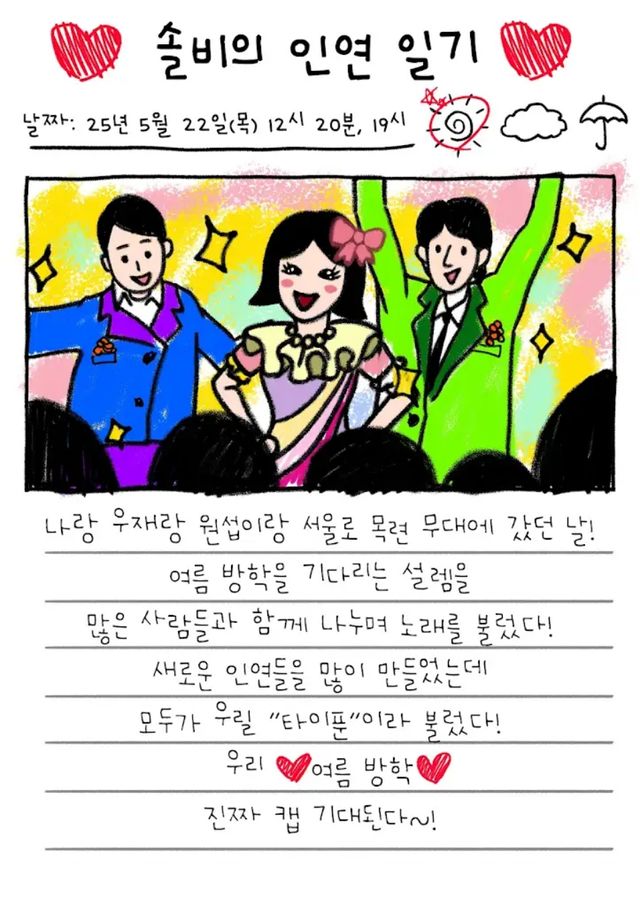 솔비의 인연 일기
날짜: 25년 5월 22일(목) 12시 20분, 19시
나랑 우재랑 원섭이랑 서울로 목련 무대에 갔던 날!
여름 방학을 기다리는 설렘을
많은 사람들과 함께 나누며 노래를 불렀다!
새로운 인연들을 많이 만들었는데
모두가 우릴 "타이푼"이라 불렀다!
우리 ❤여름 방학❤
진짜 캡 기대된다~!